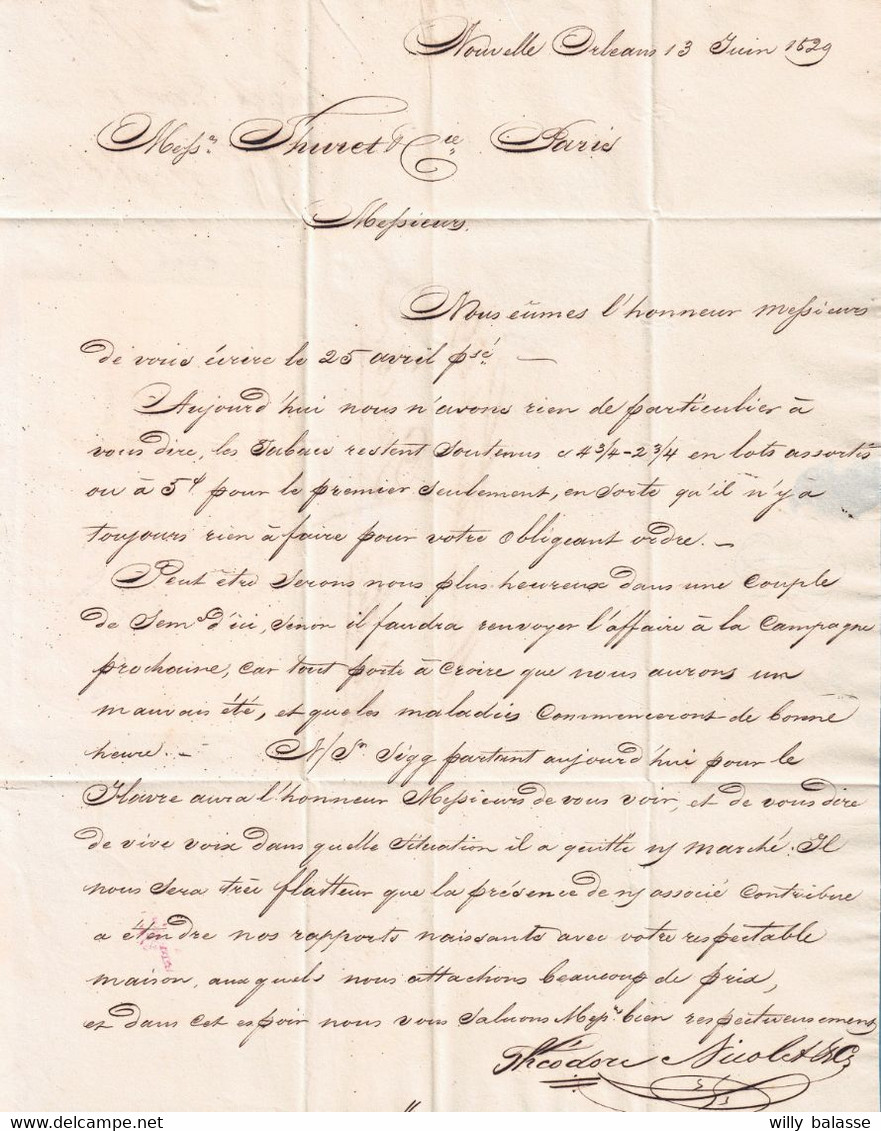 Nouvelle Orleans 13 Juin 1829
Messrs. Thuret & Cie. Paris
Messieurs.
Nous eûmes l'honneur messieurs
de vous écrire le 25 avril psé. —
Aujourd'hui nous n'avons rien de particulier à
vous dire, les Tabacs restent soutenus à 4 3/4 - 2 3/4 en lots assortis
ou à 5 pour le premier seulement, en sorte qu'il n'y à
toujours rien à faire pour votre obligeant ordre. —
Peut être serons nous plus heureux dans une couple
de Sem.s d'ici, sinon il faudra renvoyer l'affaire à la Campagne
prochaine, car tout porte à croire que nous aurons un
mauvais été, et que les maladies commenceront de bonne
heure. — N/Sr. Sigg partant aujourd'hui pour le
Havre aura l'honneur Messieurs de vous voir, et de vous dire
de vive voix dans quelle situation il a quitté n/ marché. Il
nous sera très flatteur que la présence de n/ associé contribue
a étendre nos rapports naissants avec votre respectable
maison, auxquels nous attachons beaucoup de prix,
et dans cet espoir nous vous saluons Messrs. bien respectueusement
Théodore Nicolet & Co
willy balasse